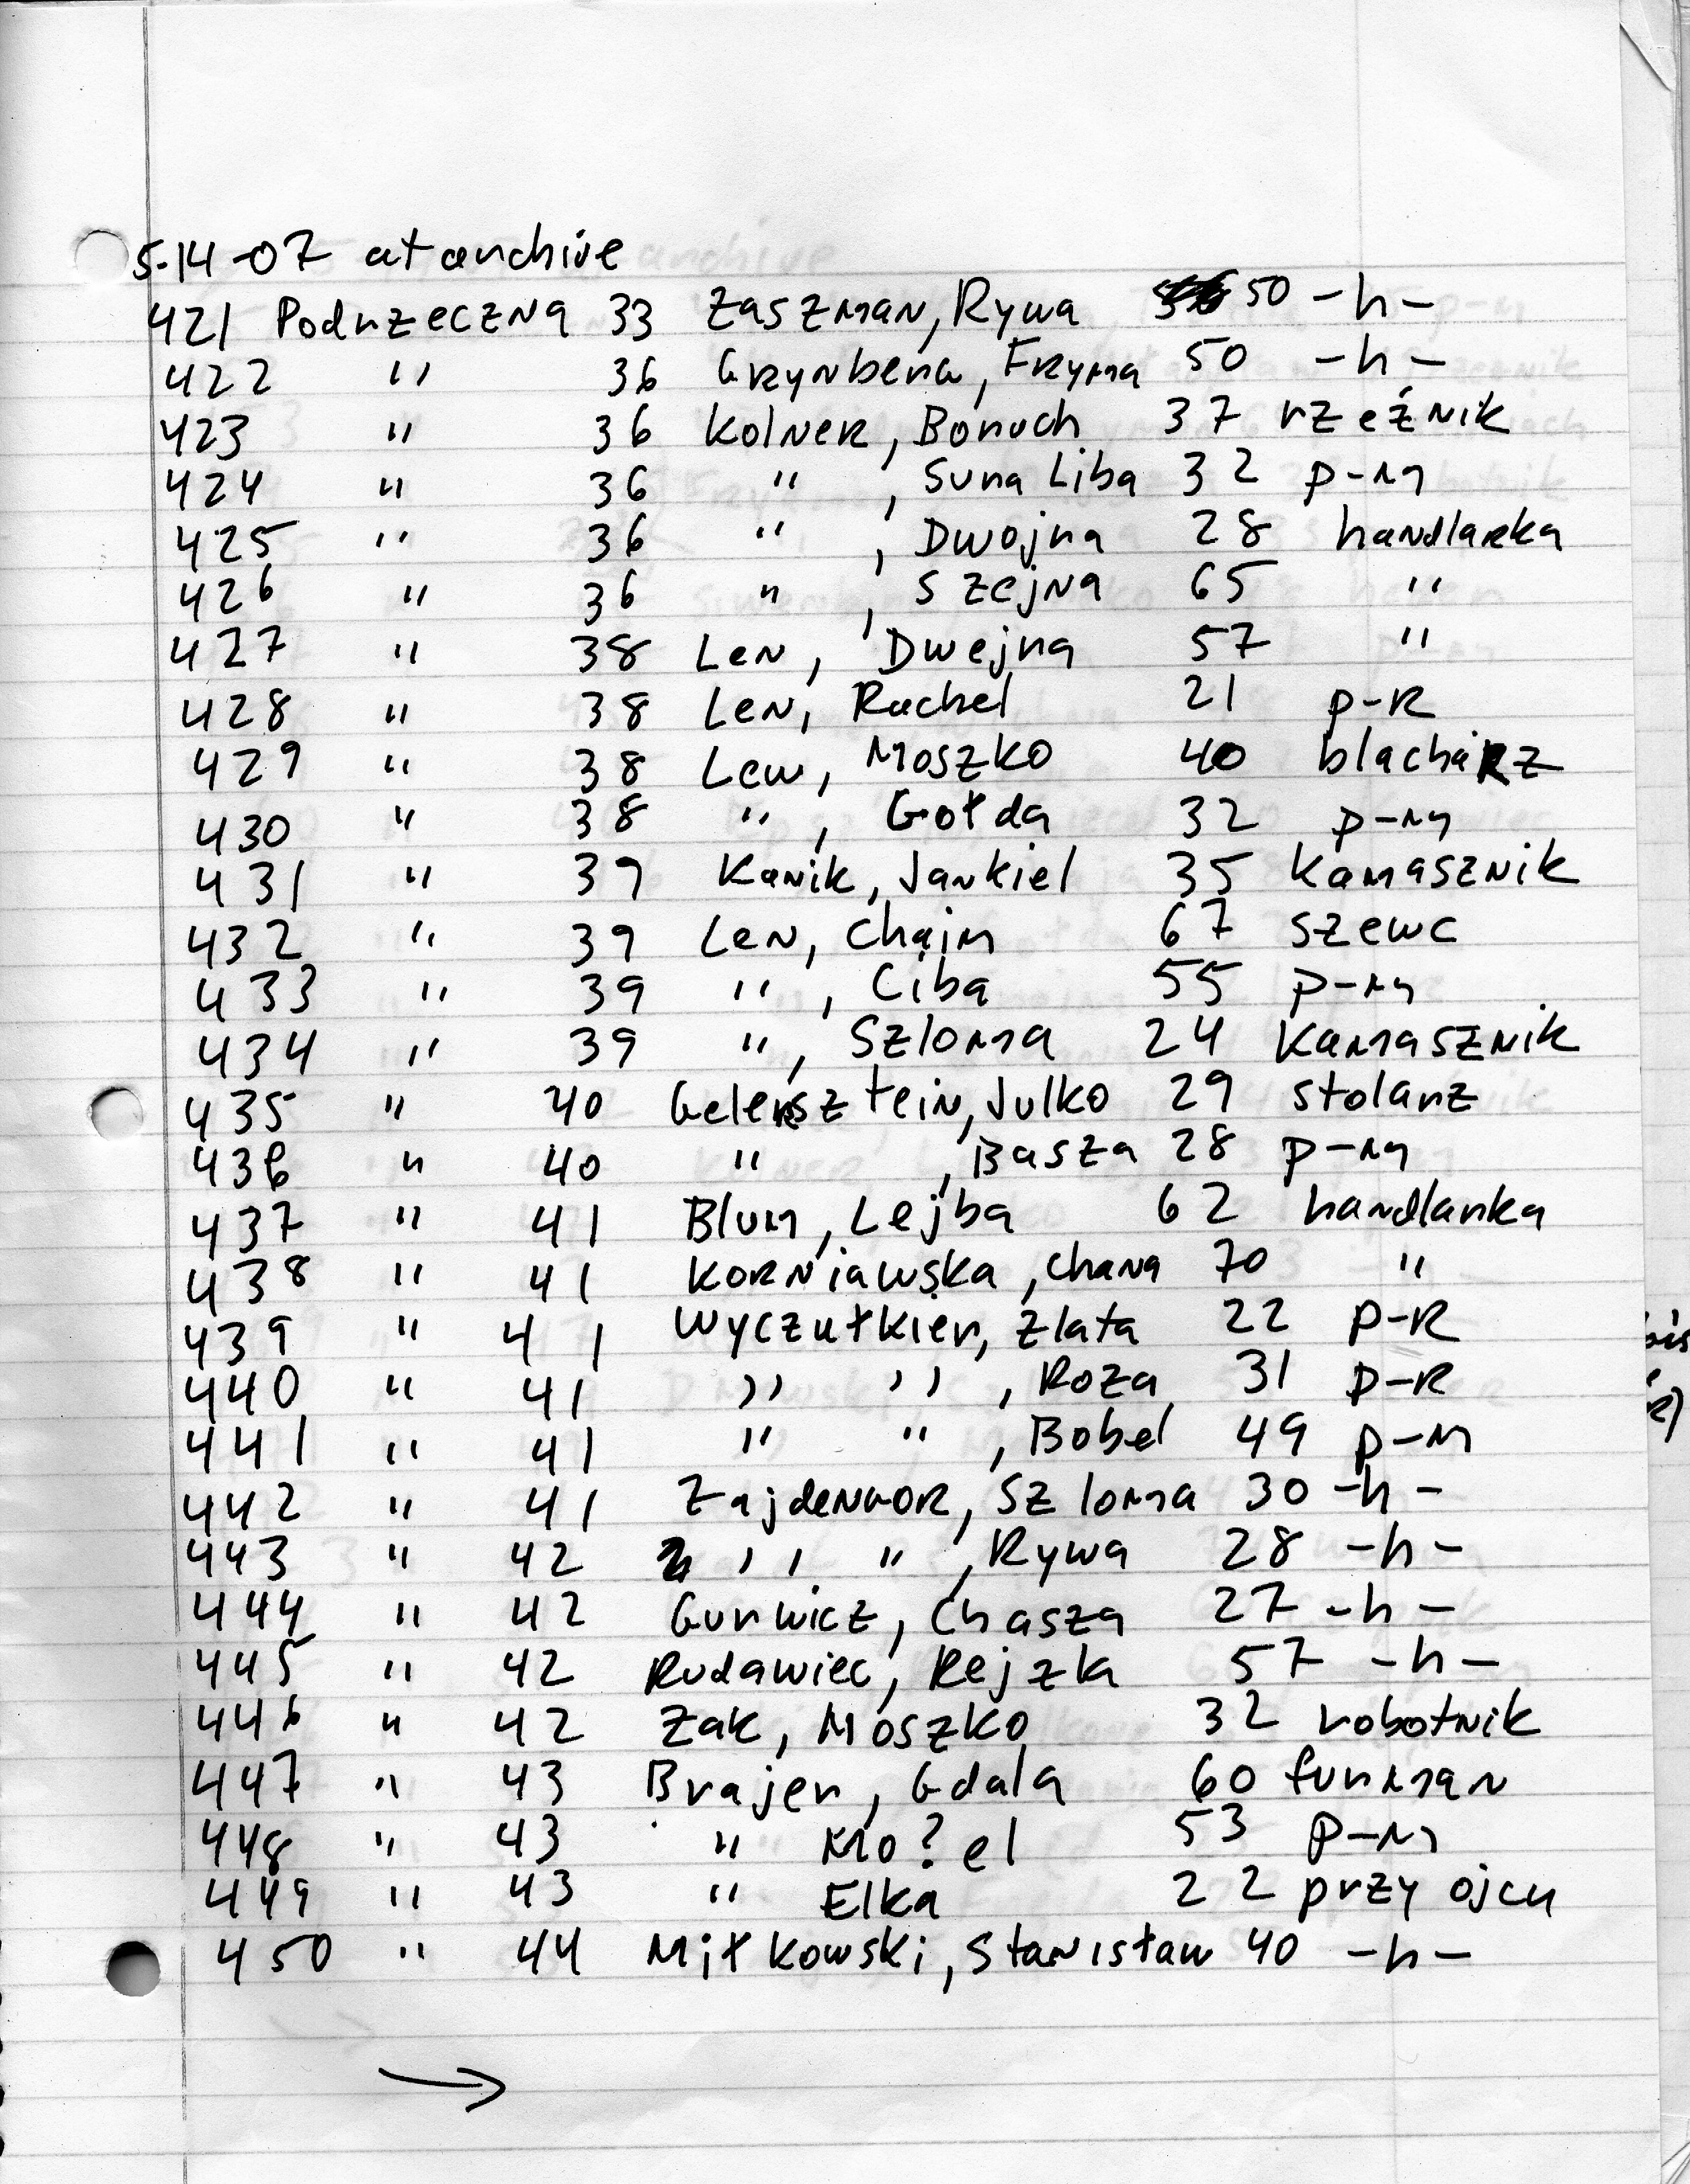 5-14-07 at archive
421 Podrzeczna 33 Zaszman, Rywa 50 -h-
422 " 36 Grynberg, Fryma 50 -h-
423 " 36 Kolner, Boruch 37 rzeźnik
424 " 36 " , Sura Liba 32 p-m
425 " 36 " , Dwojra 28 handlarka
426 " 36 " , Szejna 65 "
427 " 38 Len, Dwejra 57 "
428 " 38 Len, Rachel 21 p-R
429 " 38 Lew, Moszko 40 blacharz
430 " 38 " , Gołda 32 p-m
431 " 39 Kanik, Jankiel 35 Kamasznik
432 " 39 Len, Chaim 67 szewc
433 " 39 " , Ciba 55 p-m
434 " 39 " , Szloma 24 Kamasznik
435 " 40 Gelersztein, Julko 29 stolarz
436 " 40 " , Basza 28 p-m
437 " 41 Blum, Lejba 62 handlarka
438 " 41 Korniawska, Chana 70 "
439 " 41 Wyczułkier, Zlata 22 p-R
440 " 41 " " , Roza 31 p-R
441 " 41 " " , Bobel 49 p-m
442 " 41 Zajdenwor, Szloma 30 -h-
443 " 42 " " , Rywa 28 -h-
444 " 42 Gurwicz, Chasza 27 -h-
445 " 42 Rudawiec, Rejzla 57 -h-
446 " 42 Zak, Moszko 32 robotnik
447 " 43 Brajer, Gdala 60 furman
448 " 43 " Mo?el 53 p-m
449 " 43 " Elka 22 przy ojcu
450 " 44 Miłkowski, Stanisław 40 -h-